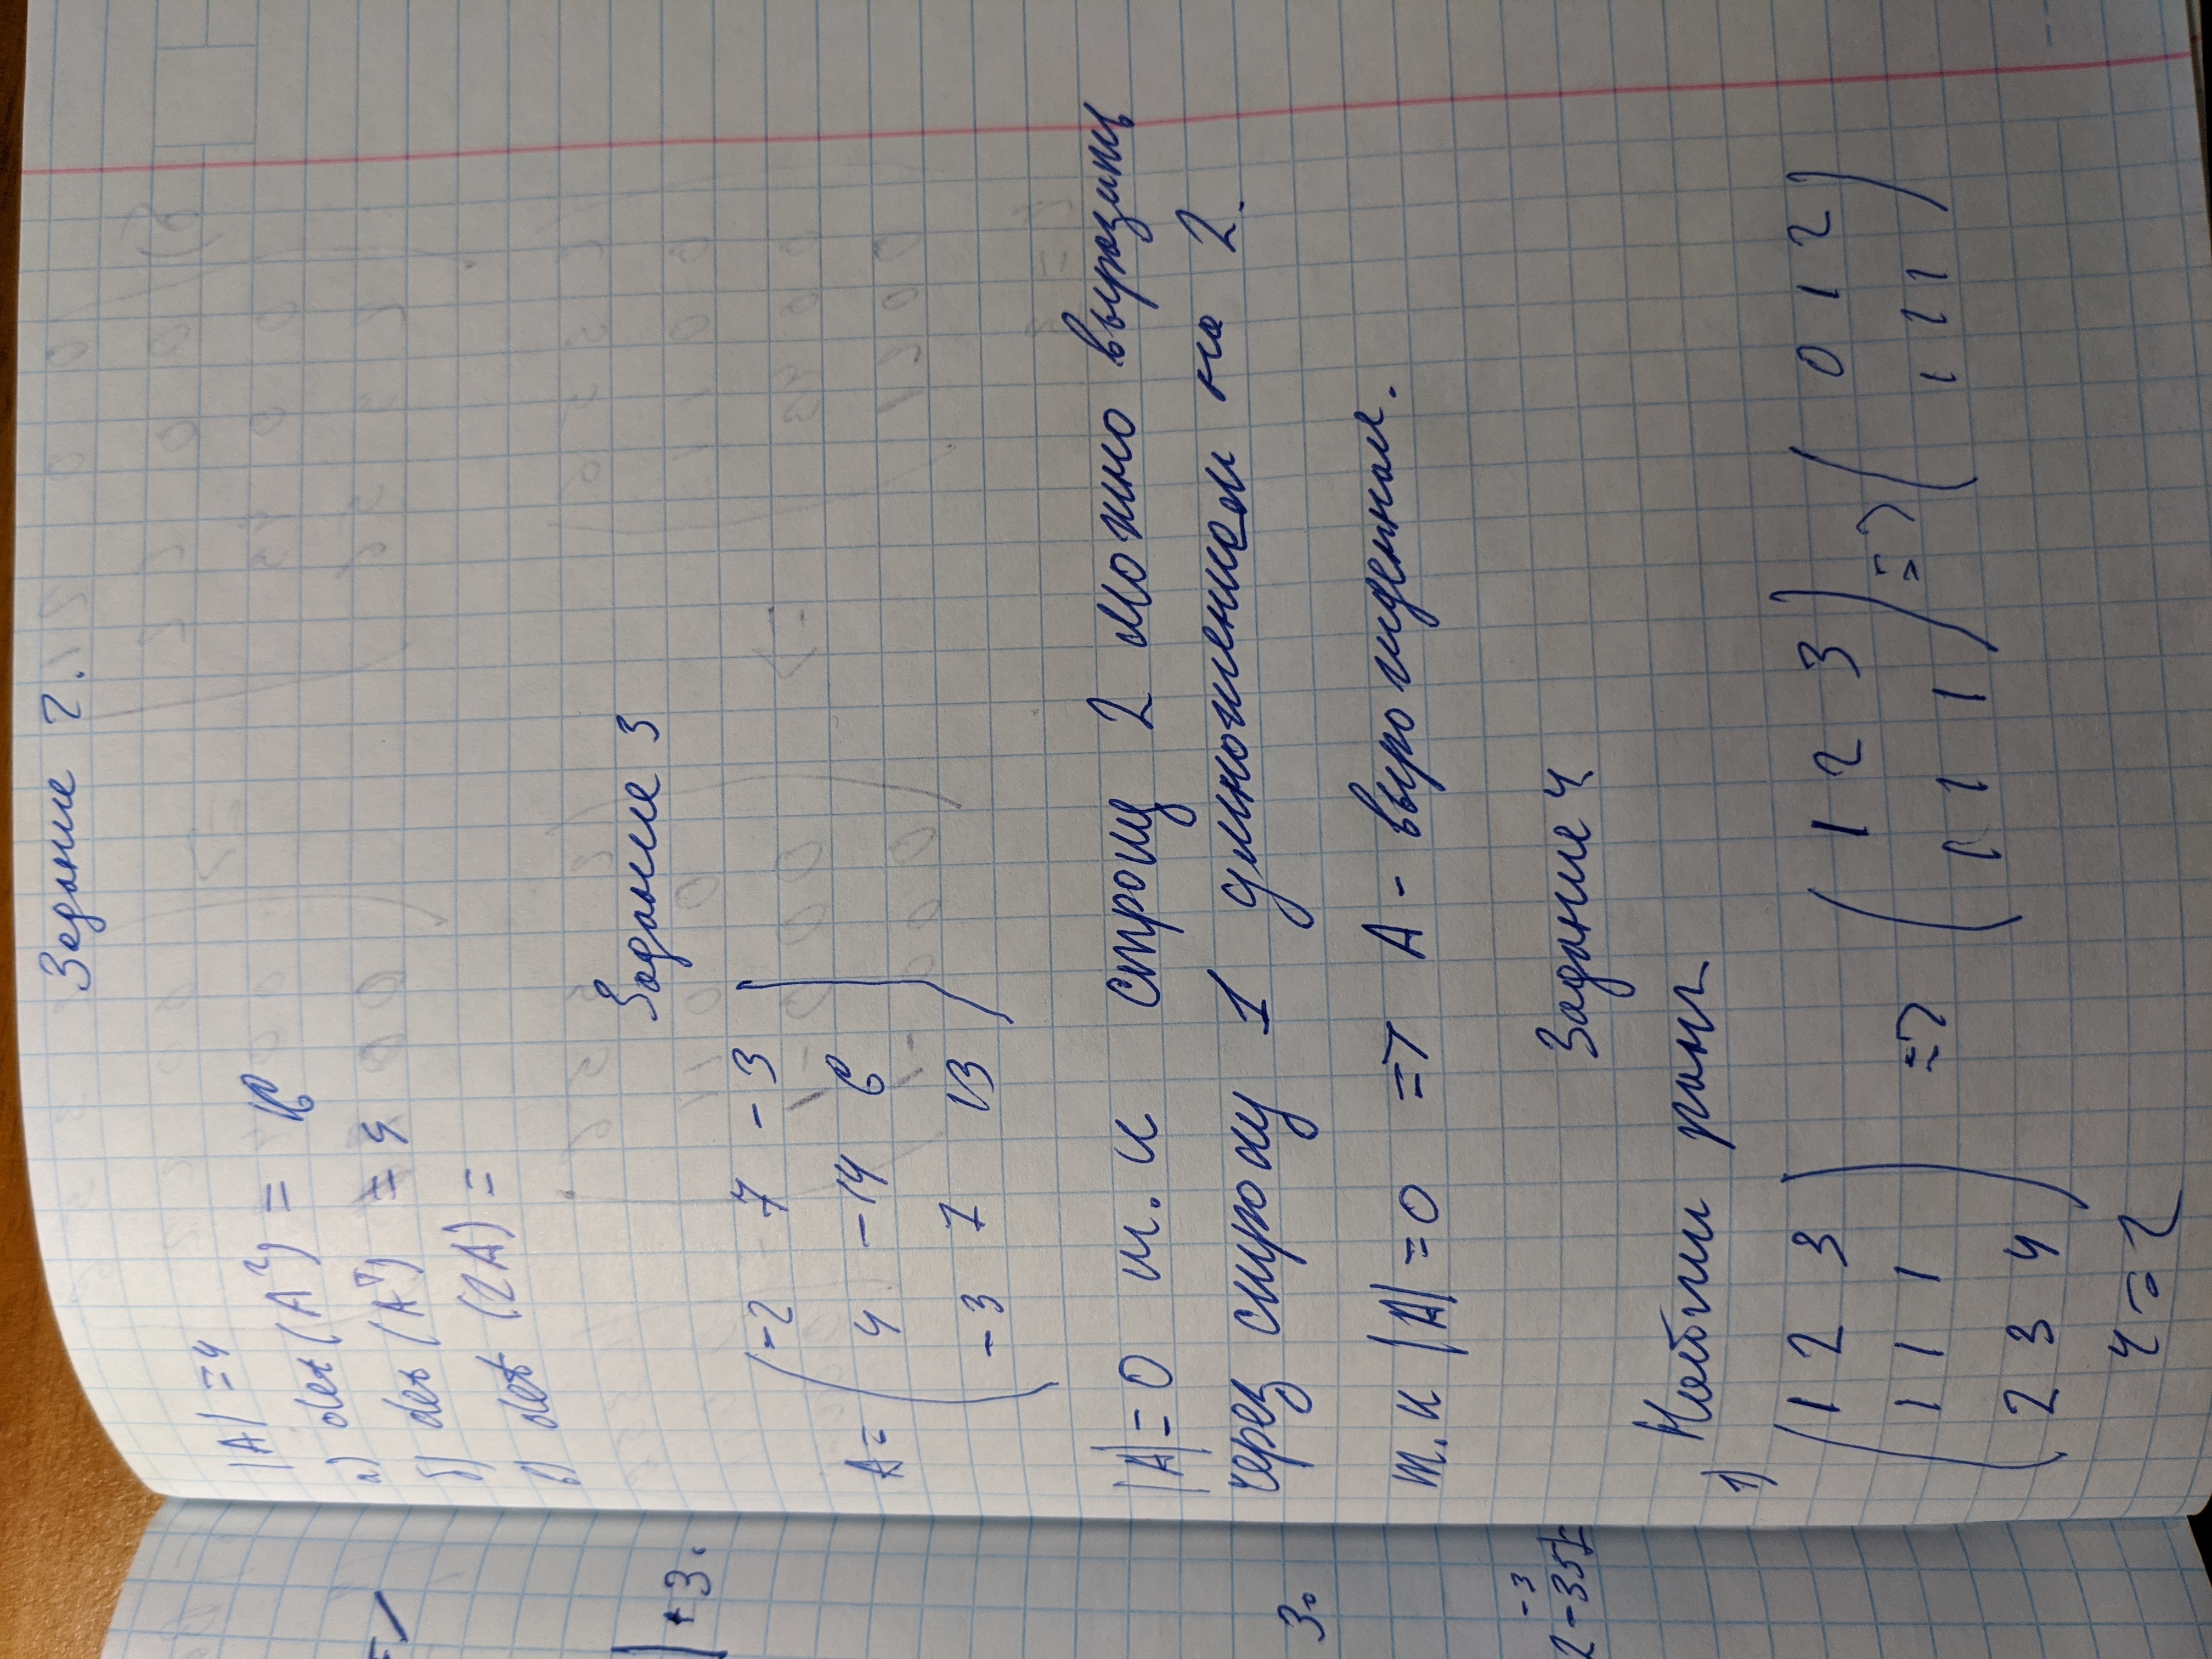 Задание 2.
|A| = 4
а) det(A²) = 16
б) det(Aᵀ) = 4
в) det (2A) =
Задание 3
-2 7 -3
A= 4 -14 6
-3 7 13
|A|=0 т.к строку 2 можно выразить
через строку 1 умножением на 2.
т.к |A|=0 => A - вырожденная.
Задание 4
Найти ранг
1)
1 2 3 1 2 3 0 1 2
1 1 1 => 1 1 1 => 1 1 1
2 3 4
r=2
+3.
3.
-3
2-35